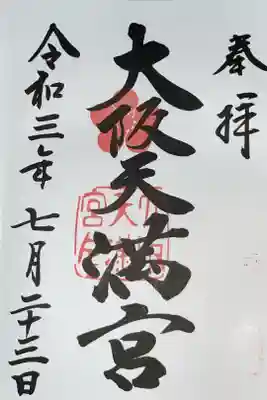 奉拝
大阪天満宮
令和三年七月二十三日